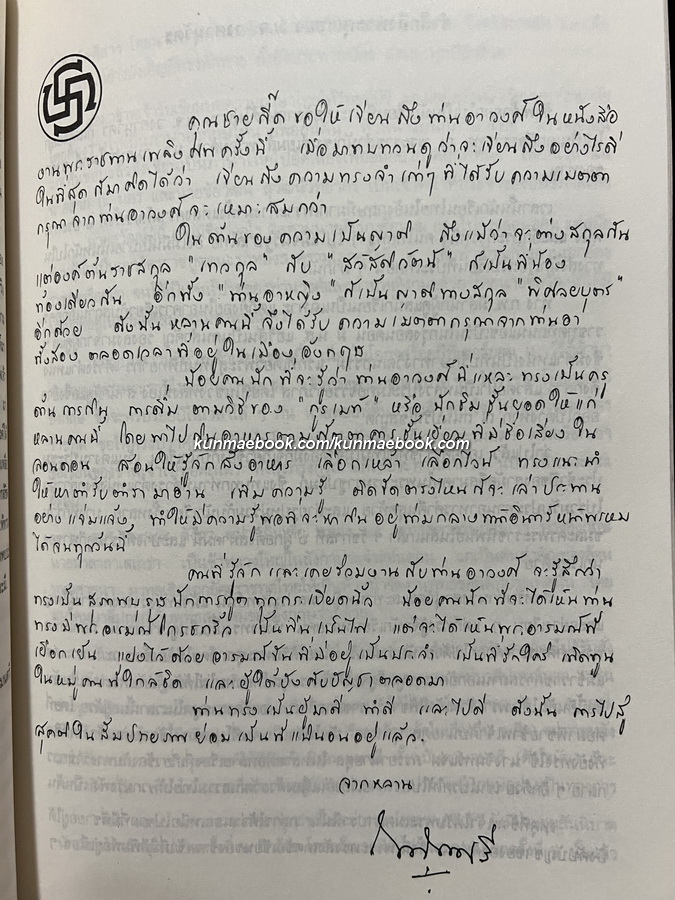 คุณชายสี่ดี ขอให้ เขียนถึงท่านอาวงศ์ ในหนังสือ
งานพระราชทานเพลิงศพครั้งนี้ เมื่อมาทบทวนดูว่าจะเขียนถึงอย่างไรดี
ในที่สุดก็มาคิดได้ว่า เขียนถึงความทรงจำเก่าๆ ที่ได้รับความเมตตา
กรุณาจากท่านอาวงศ์จะเหมาะสมกว่า
ในด้านของความเป็นญาติ ถึงแม้ว่าจะต่างสกุลกัน
แต่องค์ต้นราชสกุล "เทวกุล" กับ "สวัสดิวัตน์" ก็เป็นพี่น้อง
ท้องเดียวกัน อีกทั้ง "ท่านอาหญิง" ก็เป็นญาติทางสกุล "พิศลยบุตร"
อีกด้วย ดังนั้นหลานคนนี้จึงได้รับความเมตตากรุณาจากท่านอา
ทั้งสองตลอดเวลาที่อยู่ในเมืองอังกฤษ
น้อยคนนักที่จะรู้ว่าท่านอาวงศ์นี่แหละทรงเป็นครู
ด้านการกิน การดื่ม ตามวิธีของ "กูร์เมท์" หรือ นักชิมชั้นยอดให้แก่
หลานคนนี้ โดยพาไปกินอาหารตามภัตตาคารชั้นเยี่ยมที่มีชื่อเสียงใน
kunmaebook.com/kunmaebook.com
ลอนดอน สอนให้รู้จักสั่งอาหาร เลือกเหล้า เลือกไวน์ ทรงแนะนำ
ให้หาตำรับตำรามาอ่าน เพิ่มความรู้ ติดขัดตรงไหนก็จะเล่าประทาน
อย่างแจ่มแจ้ง ทำให้มีความรู้พอที่จะหากินอยู่ท่ามกลาง
ได้จนทุกวันนี้
คนที่รู้จักและเคยร่วมงานกับท่านอาวงศ์ จะรู้สึกว่า
ทรงเป็นสุภาพบุรุษนักการทูตทุกกระเบียดนิ้ว น้อยคนนักที่จะได้เห็นท่าน
ทรงมีพระอารมณ์โกรธกริ้ว เป็นฟืนเป็นไฟ แต่จะได้เห็นพระอารมณ์ที่
เยือกเย็น แฝงไว้ด้วยอารมณ์ขันที่มีอยู่เป็นประจำ เป็นที่รักใคร่ เทิดทูน
ในหมู่คนที่ใกล้ชิด และผู้ใต้บังคับบัญชาตลอดมา
ท่านทรงเป็นผู้มาดี ทำดี และไปดี ดังนั้น การไปสู่
สุคติในสัมปรายภพย่อมเป็นที่แน่นอนอยู่แล้ว.
จากหลาน